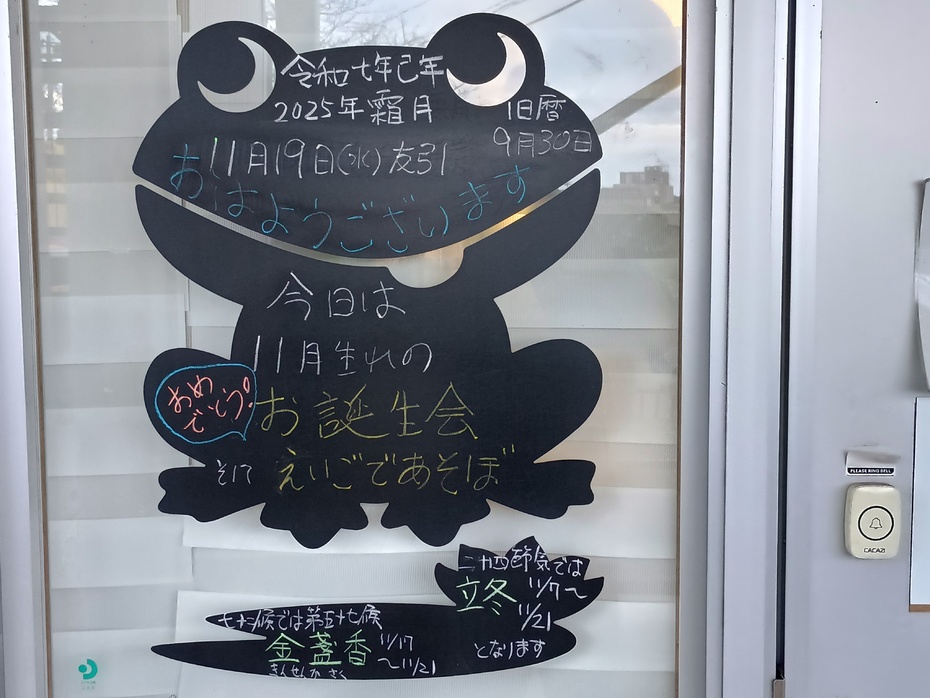 令和七年己年
2025年霜月
旧暦
9月30日
11月19日(水)友引
おはようございます
今日は
11月生れの
お誕生会
おめ
でとう!
そして えいごであそぼ
二十四節気では
立冬 11/7～
11/21
となります
七十二候では第五十七候
金盞香 11/17
～11/21
きんせんかさく
PLEASE RING BELL
CACAZI